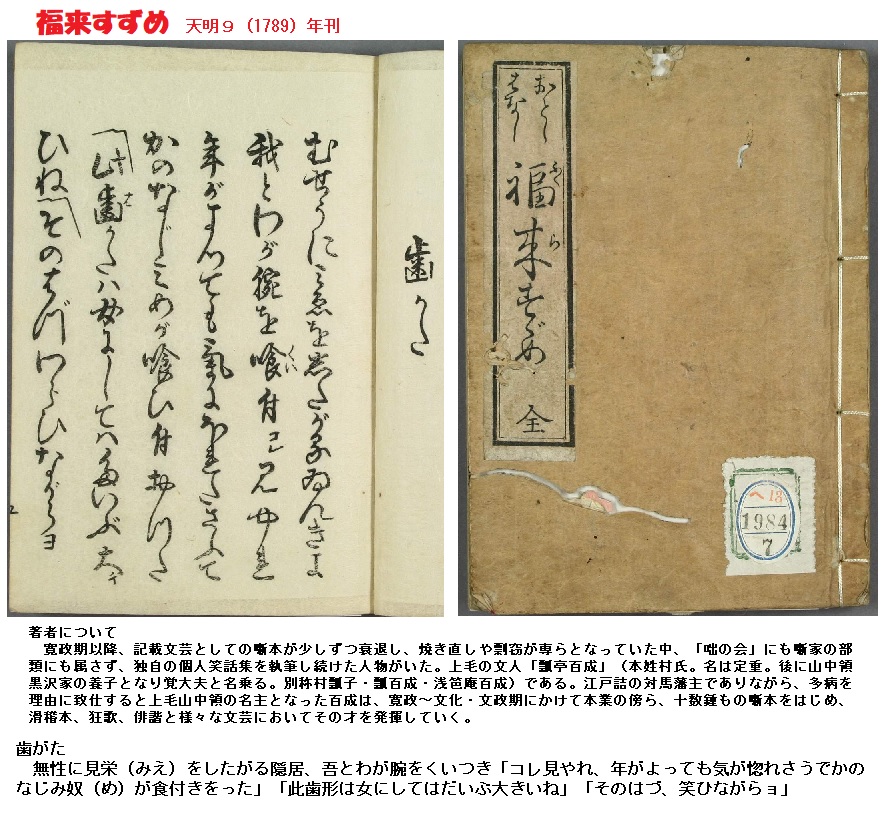 福来すずめ 天明９（1789）年刊
歯がた
むせうに見えをしたがるゐんきよ
我とわが腕を喰付コレ見やれ
年がよつても気が
かのなじみめが喰ひ付おつた
此歯がたハ女にしてハだいぶ大キ
ひねそのはづわらひながらヨ
おとし
はなし
福来すゞめ
ふく ら
全
ヘ13
1984
7
著者について
寛政期以降、記載文芸としての噺本が少しずつ衰退し、焼き直しや剽窃が専らとなっていた中、「咄の会」にも噺家の部
類にも属さず、独自の個人笑話集を執筆し続けた人物がいた。上毛の文人「瓢亭百成」（本姓村氏。名は定重。後に山中領
黒沢家の養子となり覚大夫と名乗る。別称村瓢子・瓢百成・浅笆庵百成）である。江戸詰の対馬藩主でありながら、多病を
理由に致仕すると上毛山中領の名主となった百成は、寛政～文化・文政期にかけて本業の傍ら、十数種もの噺本をはじめ、
滑稽本、狂歌、俳諧と様々な文芸においてその才を発揮していく。
歯がた
無性に見栄（みえ）をしたがる隠居、吾とわが腕をくいつき「コレ見やれ、年がよっても気が惚れさうでかの
なじみ奴（め）が食付きをった」「此歯形は女にしてはだいぶ大きいね」「そのはづ、笑ひながらョ」